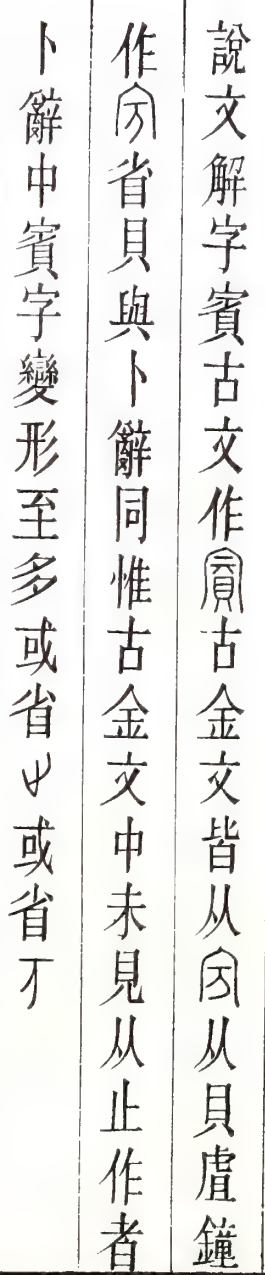 說文解字賓古文作𡪛古金文皆从𡧍从貝虘鐘
作𡧍省貝與卜辭同惟古金文中未見从止作者
卜辭中賓字變形至多或省止或省丂